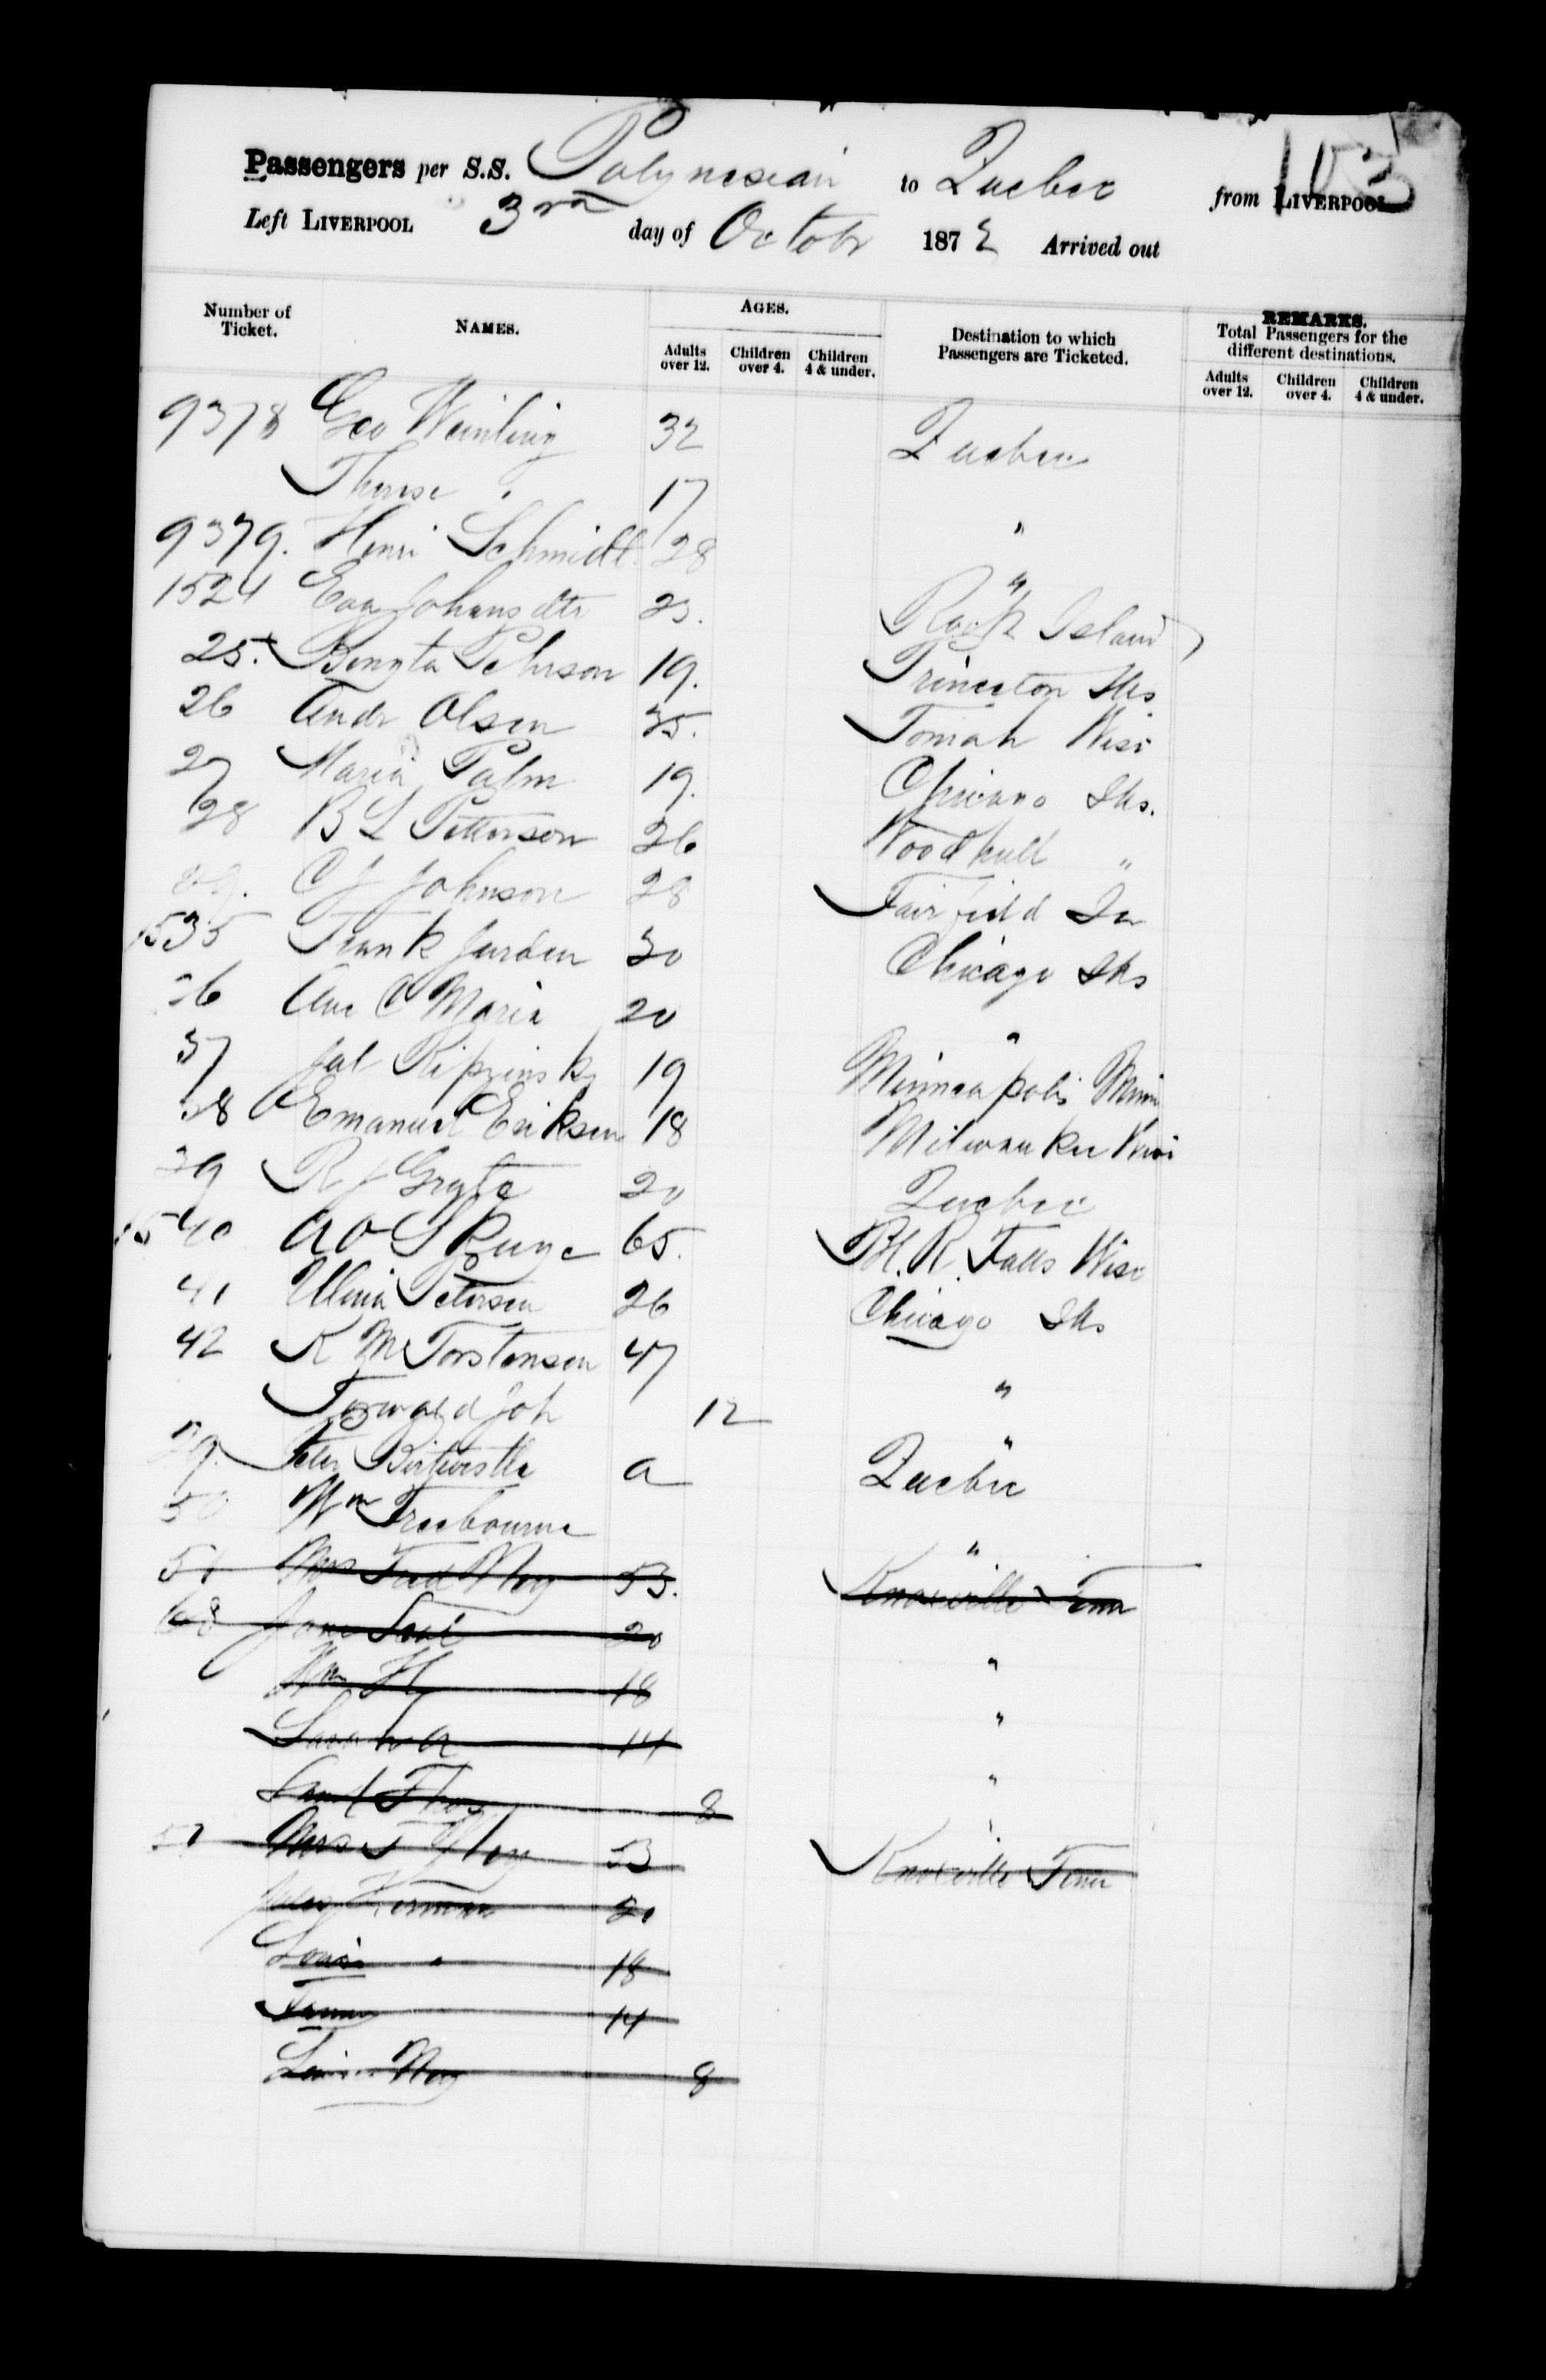 103
Passengers per S.S. Polynesian to Quebec from LIVERPOOL
Left LIVERPOOL 3rd day of Octobr 1872 Arrived out
Number of Ticket. NAMES. AGES. Destination to which Passengers are Ticketed. REMARKS. Total Passengers for the different destinations.
Adults over 12. Children over 4. Children 4 & under. Adults over 12. Children over 4. Children 4 & under.
9378 Geo Weinling 32 Quebec
Therese " 17 "
9379. Henri Schmidt 28 "
1524 Eva Johansdtr 23. Rock Island
25. Bengta Pehrson 19. Princeton Ills
26 Andr Olsen 35. Tomah Wisc
27 Maria Palm 19. Chicago Ills.
28 B L Petterson 26 Woodhull "
29. C J Johnson 28 Fairfield Ia
1535 Frank Jurden 30 Chicago Ills
36 Ane C Maria 20 "
37 Jal 19 Minneapolis Minn
38 Emanuel Eriksen 18 Milwaukee Wisc
39 R J 20 Quebec
1540 A O S 65. Bl. R. Falls Wisc
41 Petersen 26 Chicago Ills
42 K M Torstensen 47 "
Joh 12 "
49. Peter a Quebec
50 Wm Treebourne "
51 Mrs Fred May 53. Knoxville Tenn
68 Jane 20 "
Wm H 18 "
Sarah A 14 "
Saml Thos 8 "
51 Mrs F May 53 Knoxville Tenn
Herman 20
Louis " 18
14
May 8